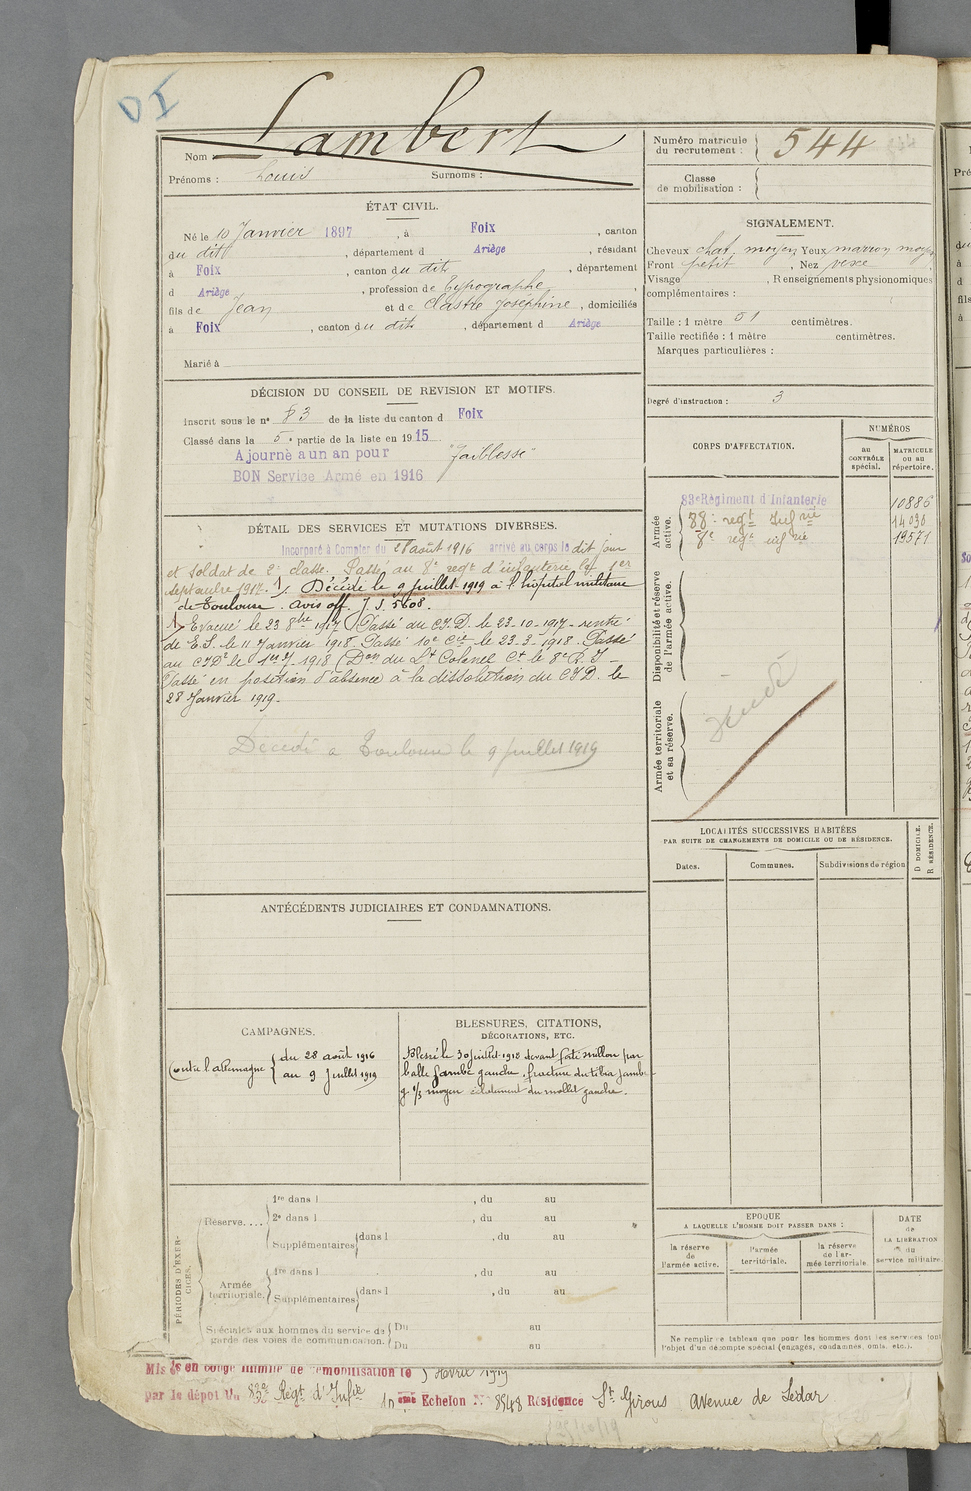 DI
Lambert
Nom :
Prénoms : Louis Surnoms :
ÉTAT CIVIL.
Né le 10 Janvier 1897, à Foix, canton
du dit, département d Ariège, résidant
à Foix, canton du dit, département
d Ariège, profession de Typographe,
fils de Jean et de Clastre Joséphine, domiciliés
à Foix, canton du dit, département d Ariège
Marié à
DÉCISION DU CONSEIL DE REVISION ET MOTIFS.
Inscrit sous le n° 83 de la liste du canton d Foix
Classé dans la 5e partie de la liste en 1915
Ajourné à un an pour "faiblesse"
BON Service Armé en 1916
DÉTAIL DES SERVICES ET MUTATIONS DIVERSES.
Incorporé à Compter du 28 août 1916 arrivé au corps le dit jour
et soldat de 2e classe. Passé au 8e regt d'infanterie le 1er
septembre 1917. 1/. Décédé le 9 juillet 1919 à l'hôpital militaire
de Toulouse. avis off. J. S. 5608.
1/ Evacué le 23 8bre 1917 Passé du C.I.D. le 23-10-1917 - rentré
de E.S. le 11 Janvier 1918. Passé 10e Cie le 23.3.1918. Passé
au CID le 1918 (Don du Lt Colonel Ct le 8e R.I -
Passé en position d'absence à la dissolution du C.I.D. le
28 Janvier 1919 -
Décédé à Toulouse le 9 juillet 1919
ANTÉCÉDENTS JUDICIAIRES ET CONDAMNATIONS.
CAMPAGNES.
Contre l'allemagne { du 28 août 1916
au 9 Juillet 1919
BLESSURES, CITATIONS,
DÉCORATIONS, ETC.
Blessé le 30 juillet 1918 devant par
balle jambe gauche, fracture du tibia jambe
g. 1/3 moyen éclatement du mollet gauche.
PÉRIODES D'EXERCICES.
Réserve....
1re dans l , du au
2e dans l , du au
Supplémentaires dans l , du au
Armée territoriale.
1re dans l , du au
Supplémentaires dans l , du au
Spéciales aux hommes du service de Du au
garde des voies de communication. Du au
Mis en congé illimité de démobilisation le Avril 1919
par le dépôt du 88e Regt d'Infie Echelon N° 8548 Résidence St Girons Avenue de
Numéro matricule
du recrutement : 544
Classe
de mobilisation :
SIGNALEMENT.
Cheveux chat. moyen Yeux marron moyen
Front petit, Nez vexe
Visage , Renseignements physionomiques
complémentaires :
Taille : 1 mètre 51 centimètres.
Taille rectifiée : 1 mètre centimètres.
Marques particulières :
Degré d'instruction : 3
CORPS D'AFFECTATION.
NUMÉROS
au
CONTRÔLE
spécial.
MATRICULE
ou au
répertoire.
Armée
active.
83e Régiment d'Infanterie 10886
88e regt Infrie 14030
8e regt infrie 19571
Disponibilité et réserve
de l'armée active.
Armée territoriale
et sa réserve.
LOCALITÉS SUCCESSIVES HABITÉES
PAR SUITE DE CHANGEMENTS DE DOMICILE OU DE RÉSIDENCE.
Dates. Communes. Subdivisions de région
D DOMICILE.
R RÉSIDENCE.
EPOQUE
A LAQUELLE L'HOMME DOIT PASSER DANS :
la réserve
de
l'armée active.
l'armée
territoriale.
la réserve
de l'ar-
mée territoriale.
DATE
de
LA LIBÉRATION
du
service militaire.
Ne remplir ce tableau que pour les hommes dont les services font
l'objet d'un décompte spécial (engagés, condamnés, omis, etc.).